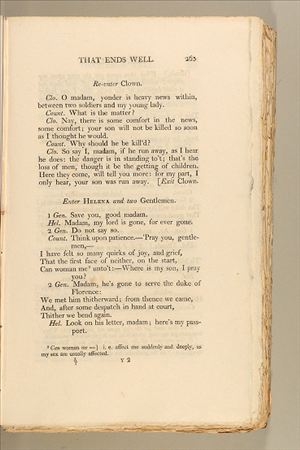 THAT ENDS WELL. 265
Re-enter Clown.
Clo. O madam, yonder is heavy news within,
between two soldiers and my young lady.
Count. What is the matter?
Clo. Nay, there is some comfort in the news,
some comfort; your son will not be killed so soon
as I thought he would.
Count. Why should he be kill'd?
Clo. So say I, madam, if he run away, as I hear
he does: the danger is in standing to't; that's the
loss of men, though it be the getting of children.
Here they come, will tell you more: for my part, I
only hear, your son was run away. [Exit Clown.
Enter HELENA and two Gentlemen.
1 Gen. Save you, good madam.
Hel. Madam, my lord is gone, for ever gone.
2 Gen. Do not say so.
Count. Think upon patience.—'Pray you, gentle-
men,—
I have felt so many quirks of joy, and grief,
That the first face of neither, on the start,
Can woman me³ unto't:—Where is my son, I pray
you?
2 Gen. Madam, he's gone to serve the duke of
Florence:
We met him thitherward; from thence we came,
And, after some despatch in hand at court,
Thither we bend again.
Hel. Look on his letter, madam; here's my pass-
port.
³ Can woman me —] i. e. affect me suddenly and deeply, as
my sex are usually affected.
Y 2